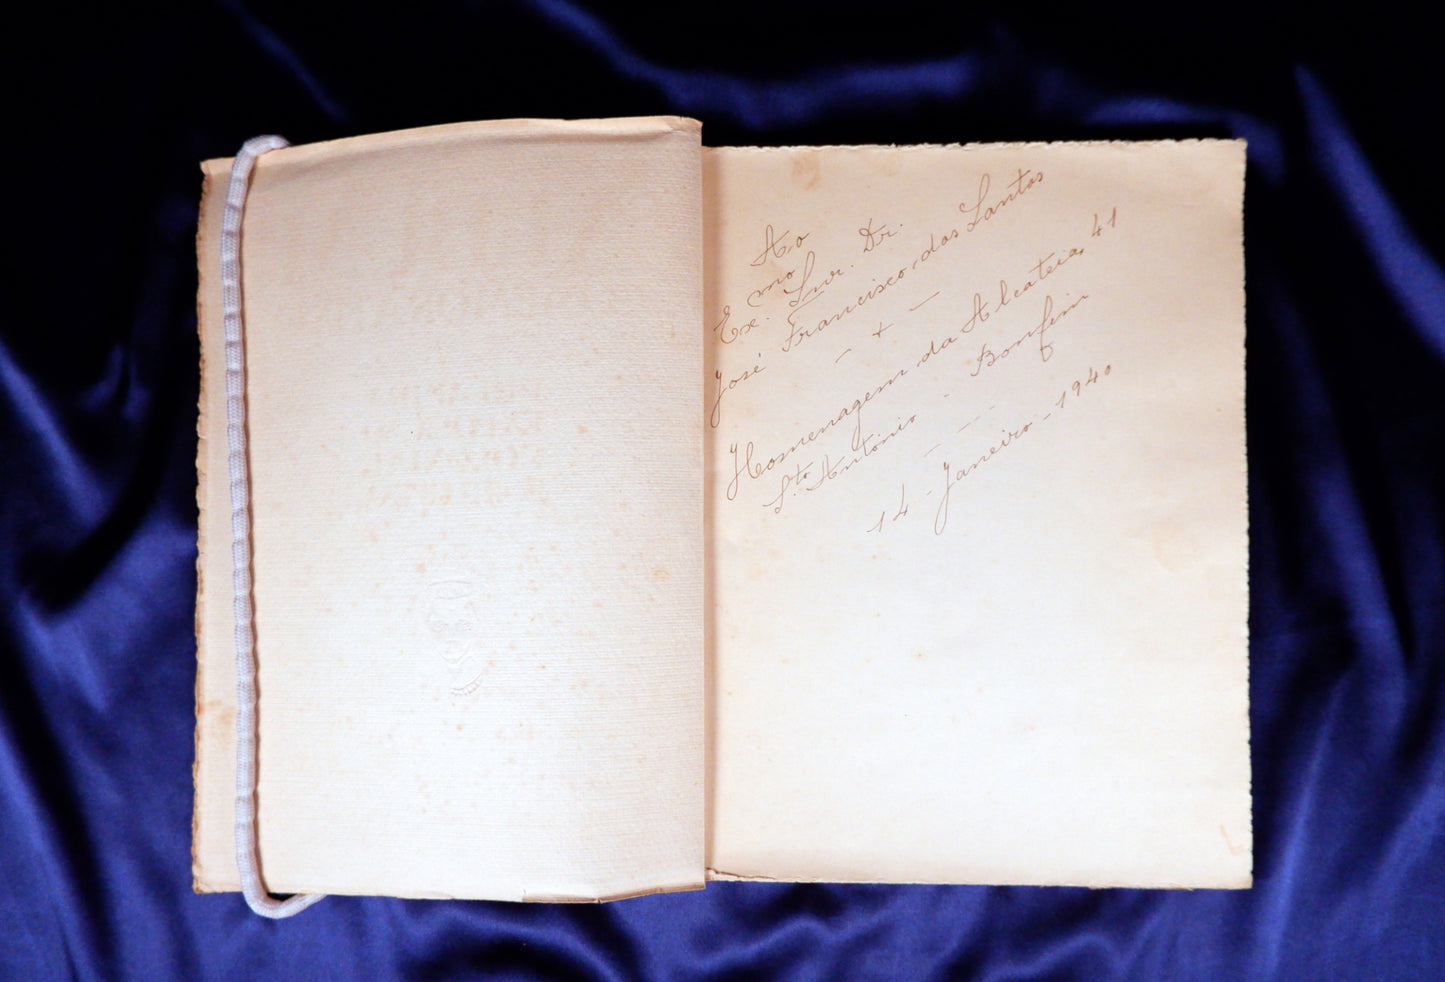 Ao
Exmo. Snr. Dr.
José Francisco dos Santos
- + -
Homenagem da Alcateia, 41
Sto. António - Bonfim
- - -
14 - Janeiro - 1940